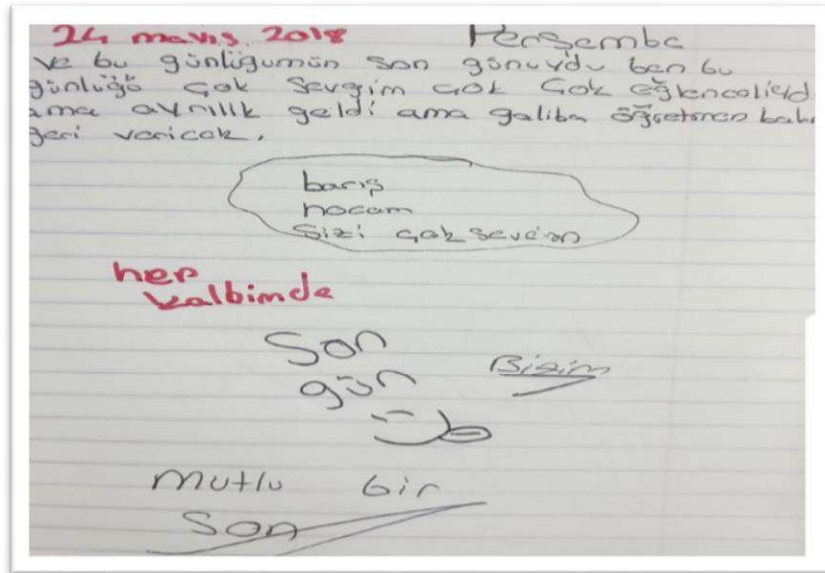 24 mayıs 2018 Perşembe
ve bu günlüğümün son günüydü ben bu
günlüğü çok sevgim çok çok eğlenceliyd
ama ayrılık geldi ama galiba öğretmen
geri vericek.
barış
hocam
sizi çok seviyom
hep
kalbimde
Son
gün
Bizim
mutlu bir
Son